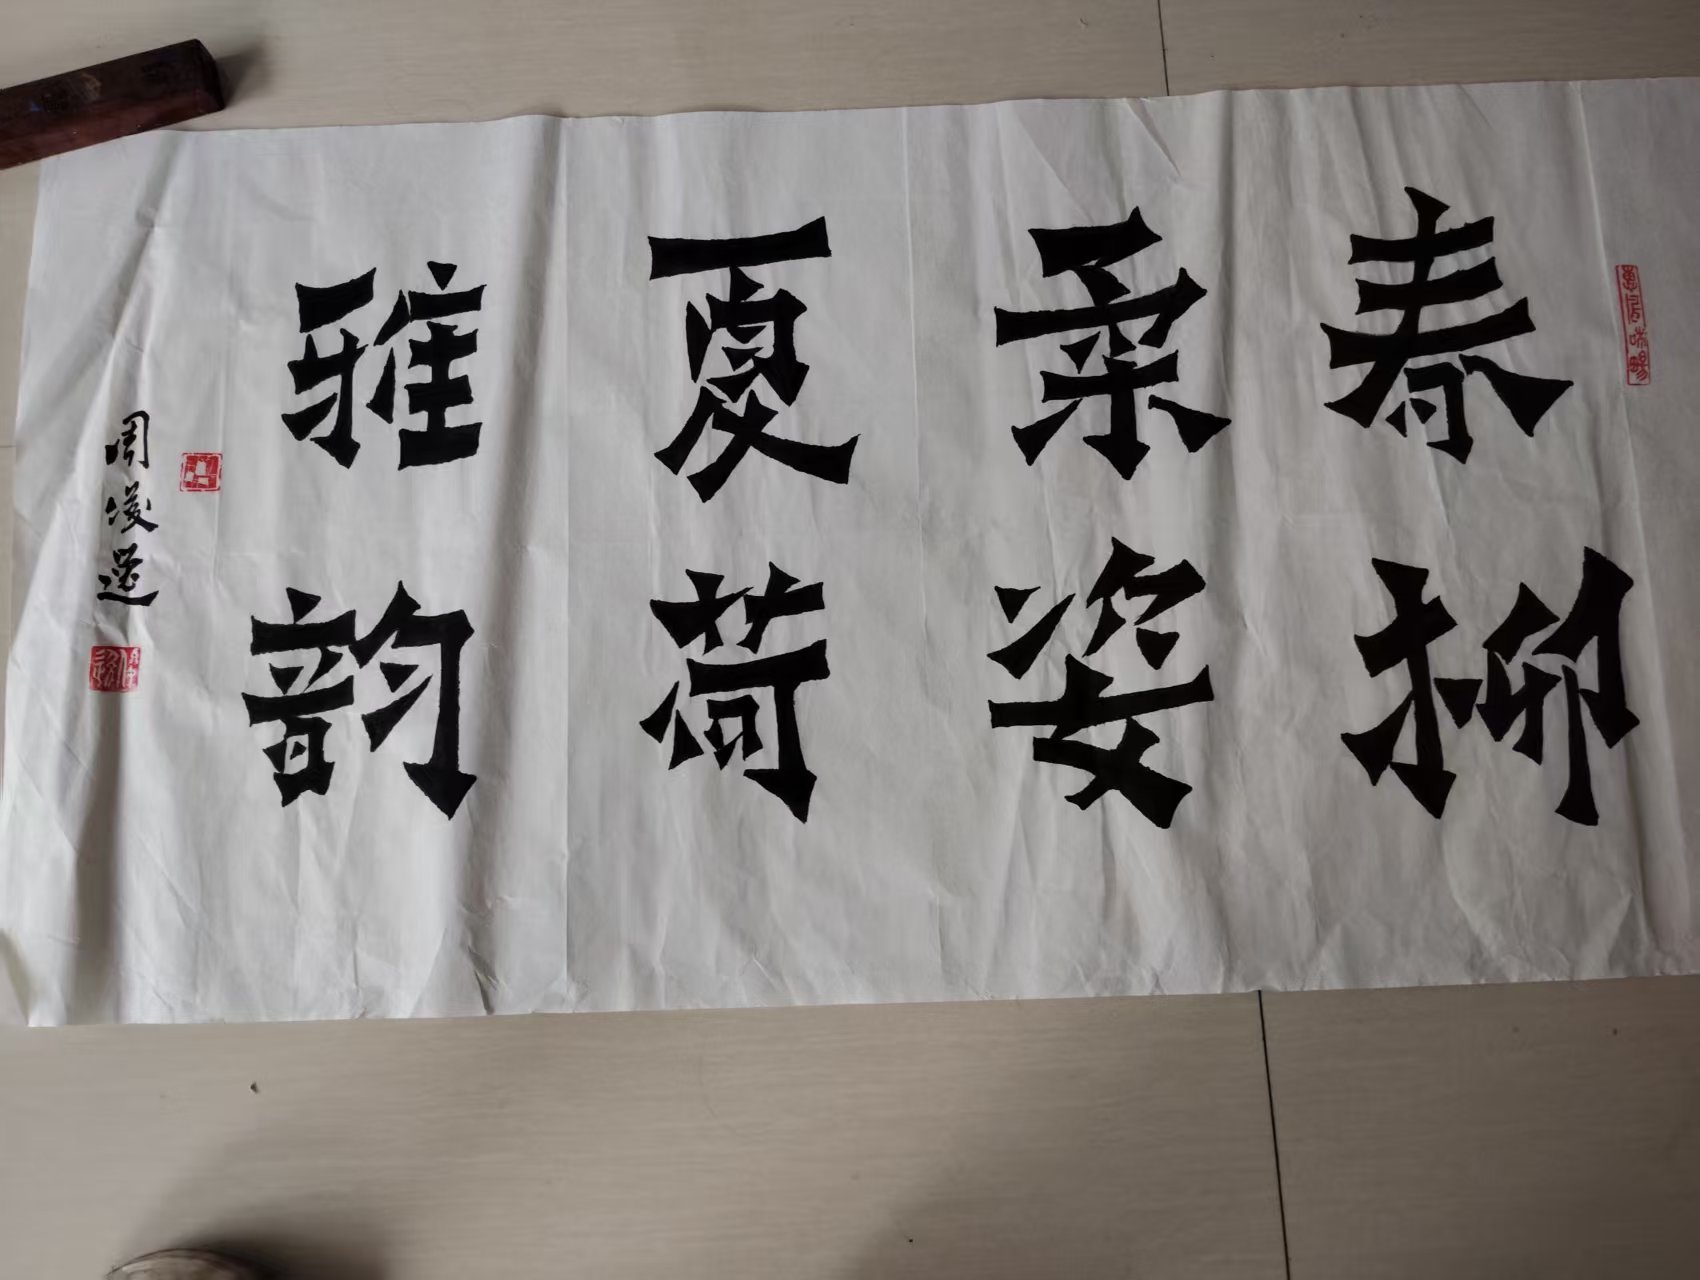 春柳
柔姿
夏荷
雅韵
周俊选